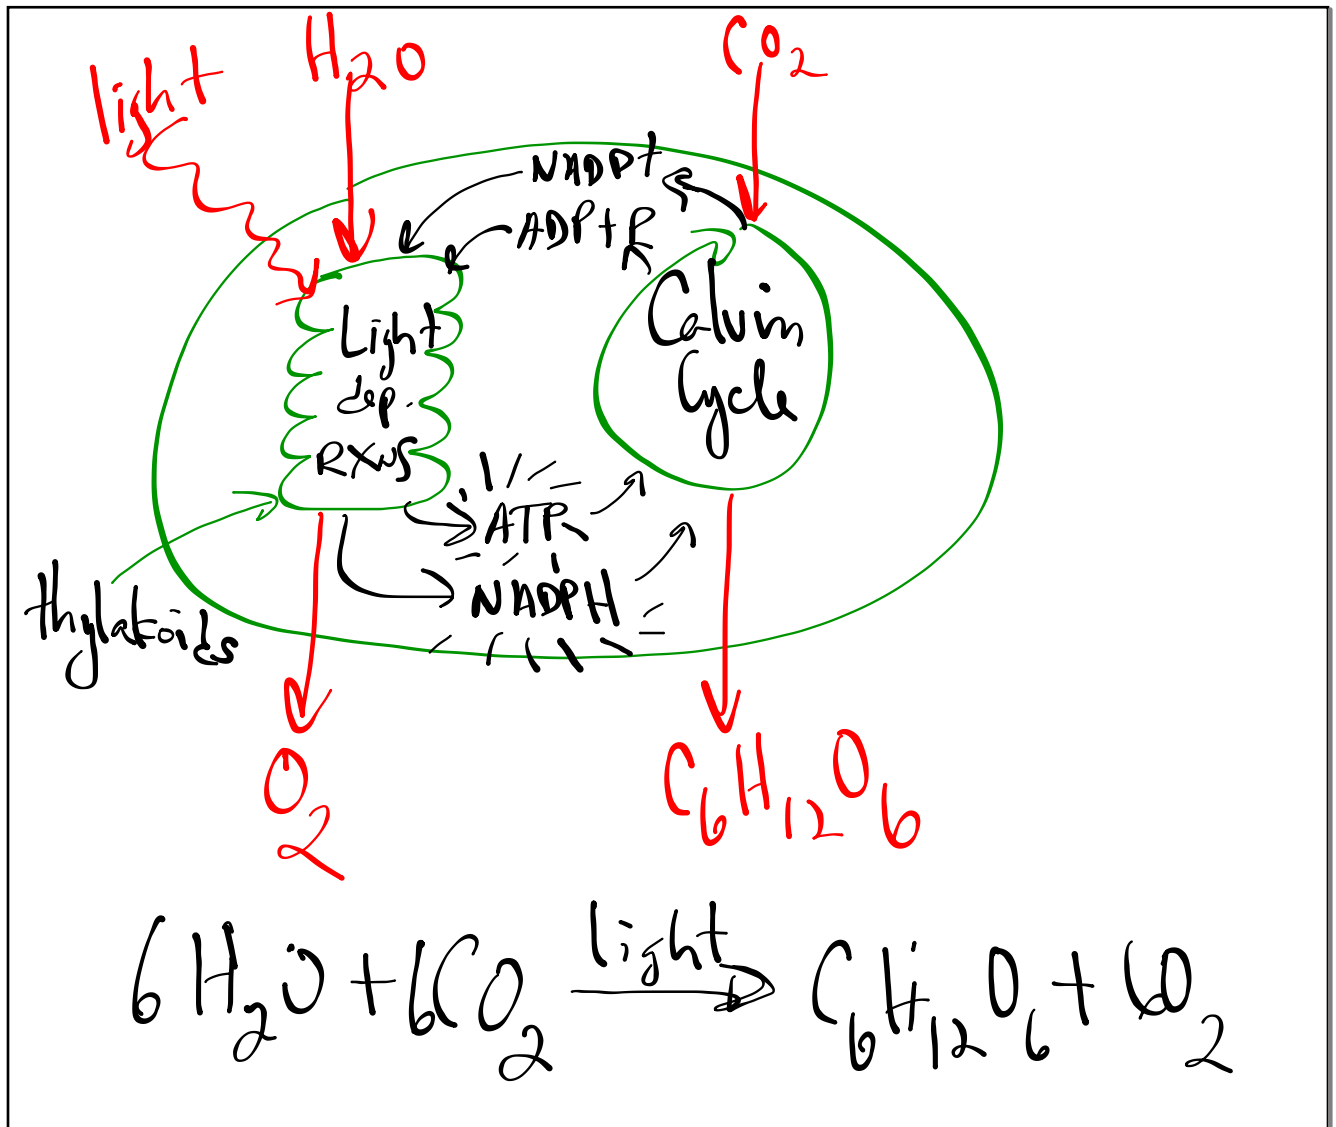 light
H₂O
CO₂
NADP+
ADP+P
Light
dep.
RXNS
Calvin
Cycle
ATP
NADPH
thylakoids
O₂
C₆H₁₂O₆
light
6H₂O + 6CO₂ → C₆H₁₂O₆ + 6O₂